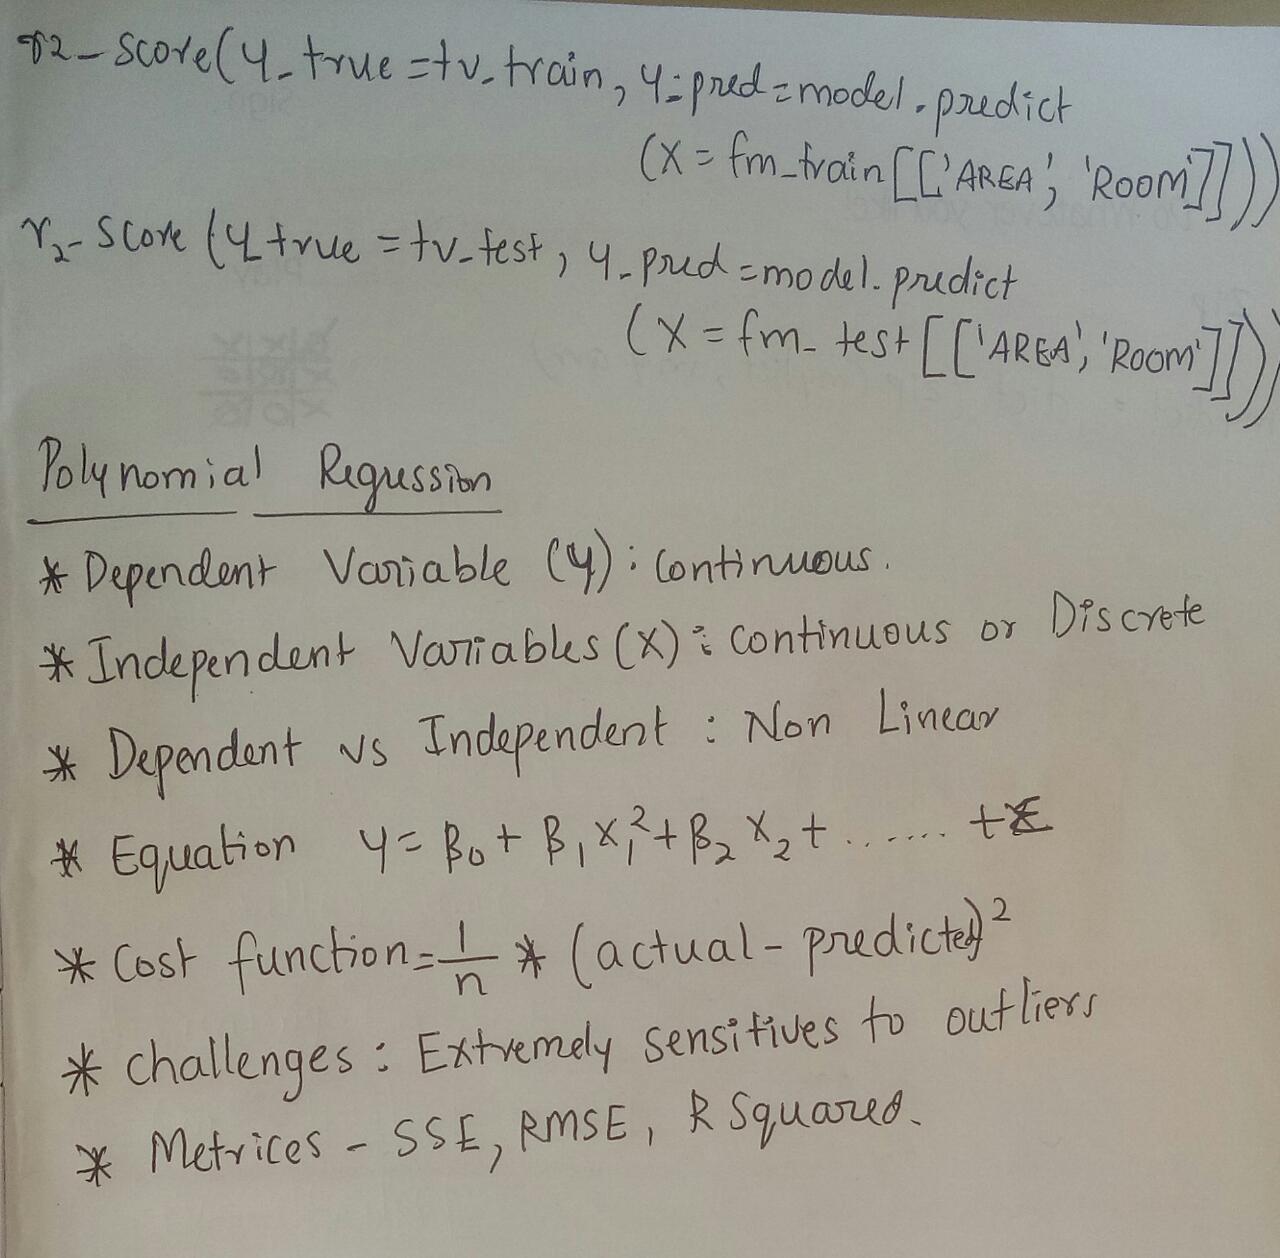 r2_score(y_true=tv_train, y_pred=model.predict
(X = fm_train[['AREA', 'ROOM']]))
r2_score (y_true = tv_test, y_pred =model.predict
(X = fm_test [['AREA', 'ROOM']]))
Polynomial Regression
* Dependent Variable (y) : Continuous.
* Independent Variables (X) : Continuous or Discrete
* Dependent vs Independent : Non Linear
* Equation y = β₀ + β₁ x₁² + β₂ x₂ + ....... + ε
* Cost function = 1/n * (actual - predicted)²
* Challenges : Extremely sensitives to outliers
* Metrices - SSE, RMSE, R Squared.